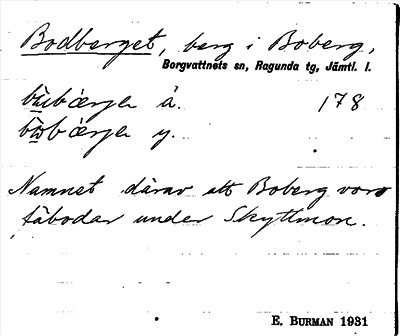 Bodberget, berg i Boberg,
Borgvattnets sn, Ragunda tg, Jämtl. l.
å. 178
y.
Namnet därav att Boberg voro
fäbodar under Skyttmon.
E. BURMAN 1931